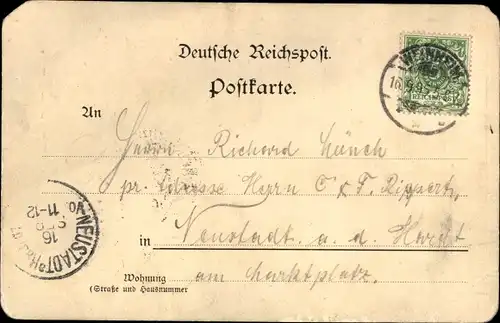 Deutsche Reichspost.
Postkarte.
WEINHEIM
REICHSPOST
An
Herrn Richard Münch
pr. Adresse Herrn C & F. Rippert,
in Neustadt a. d. Hardt
am Marktplatz.
Wohnung
(Straße und Hausnummer
NEUSTADT
16
11-12